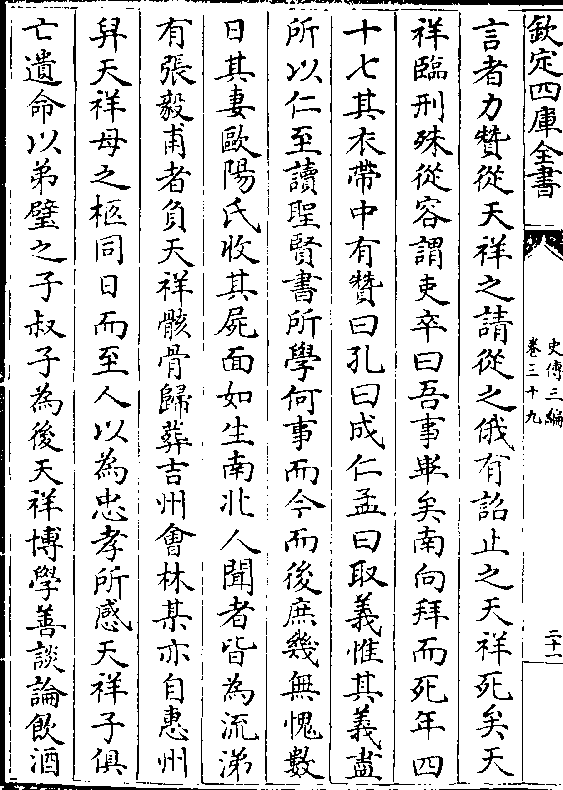 欽定四庫全書
史傳三編
卷三十九
二十一
言者力贊從天祥之請從之俄有詔止之天祥死矣天
祥臨刑殊從容謂吏卒曰吾事畢矣南向拜而死年四
十七其衣帶中有贊曰孔曰成仁孟曰取義惟其義盡
所以仁至讀聖賢書所學何事而今而後庶幾無愧數
日其妻歐陽氏收其屍面如生南北人聞者皆為流涕
有張毅甫者負天祥骸骨歸葬吉州會林某亦自惠州
舁天祥母之柩同日而至人以為忠孝所感天祥子俱
亡遺命以弟璧之子叔子為後天祥博學善談論飲酒